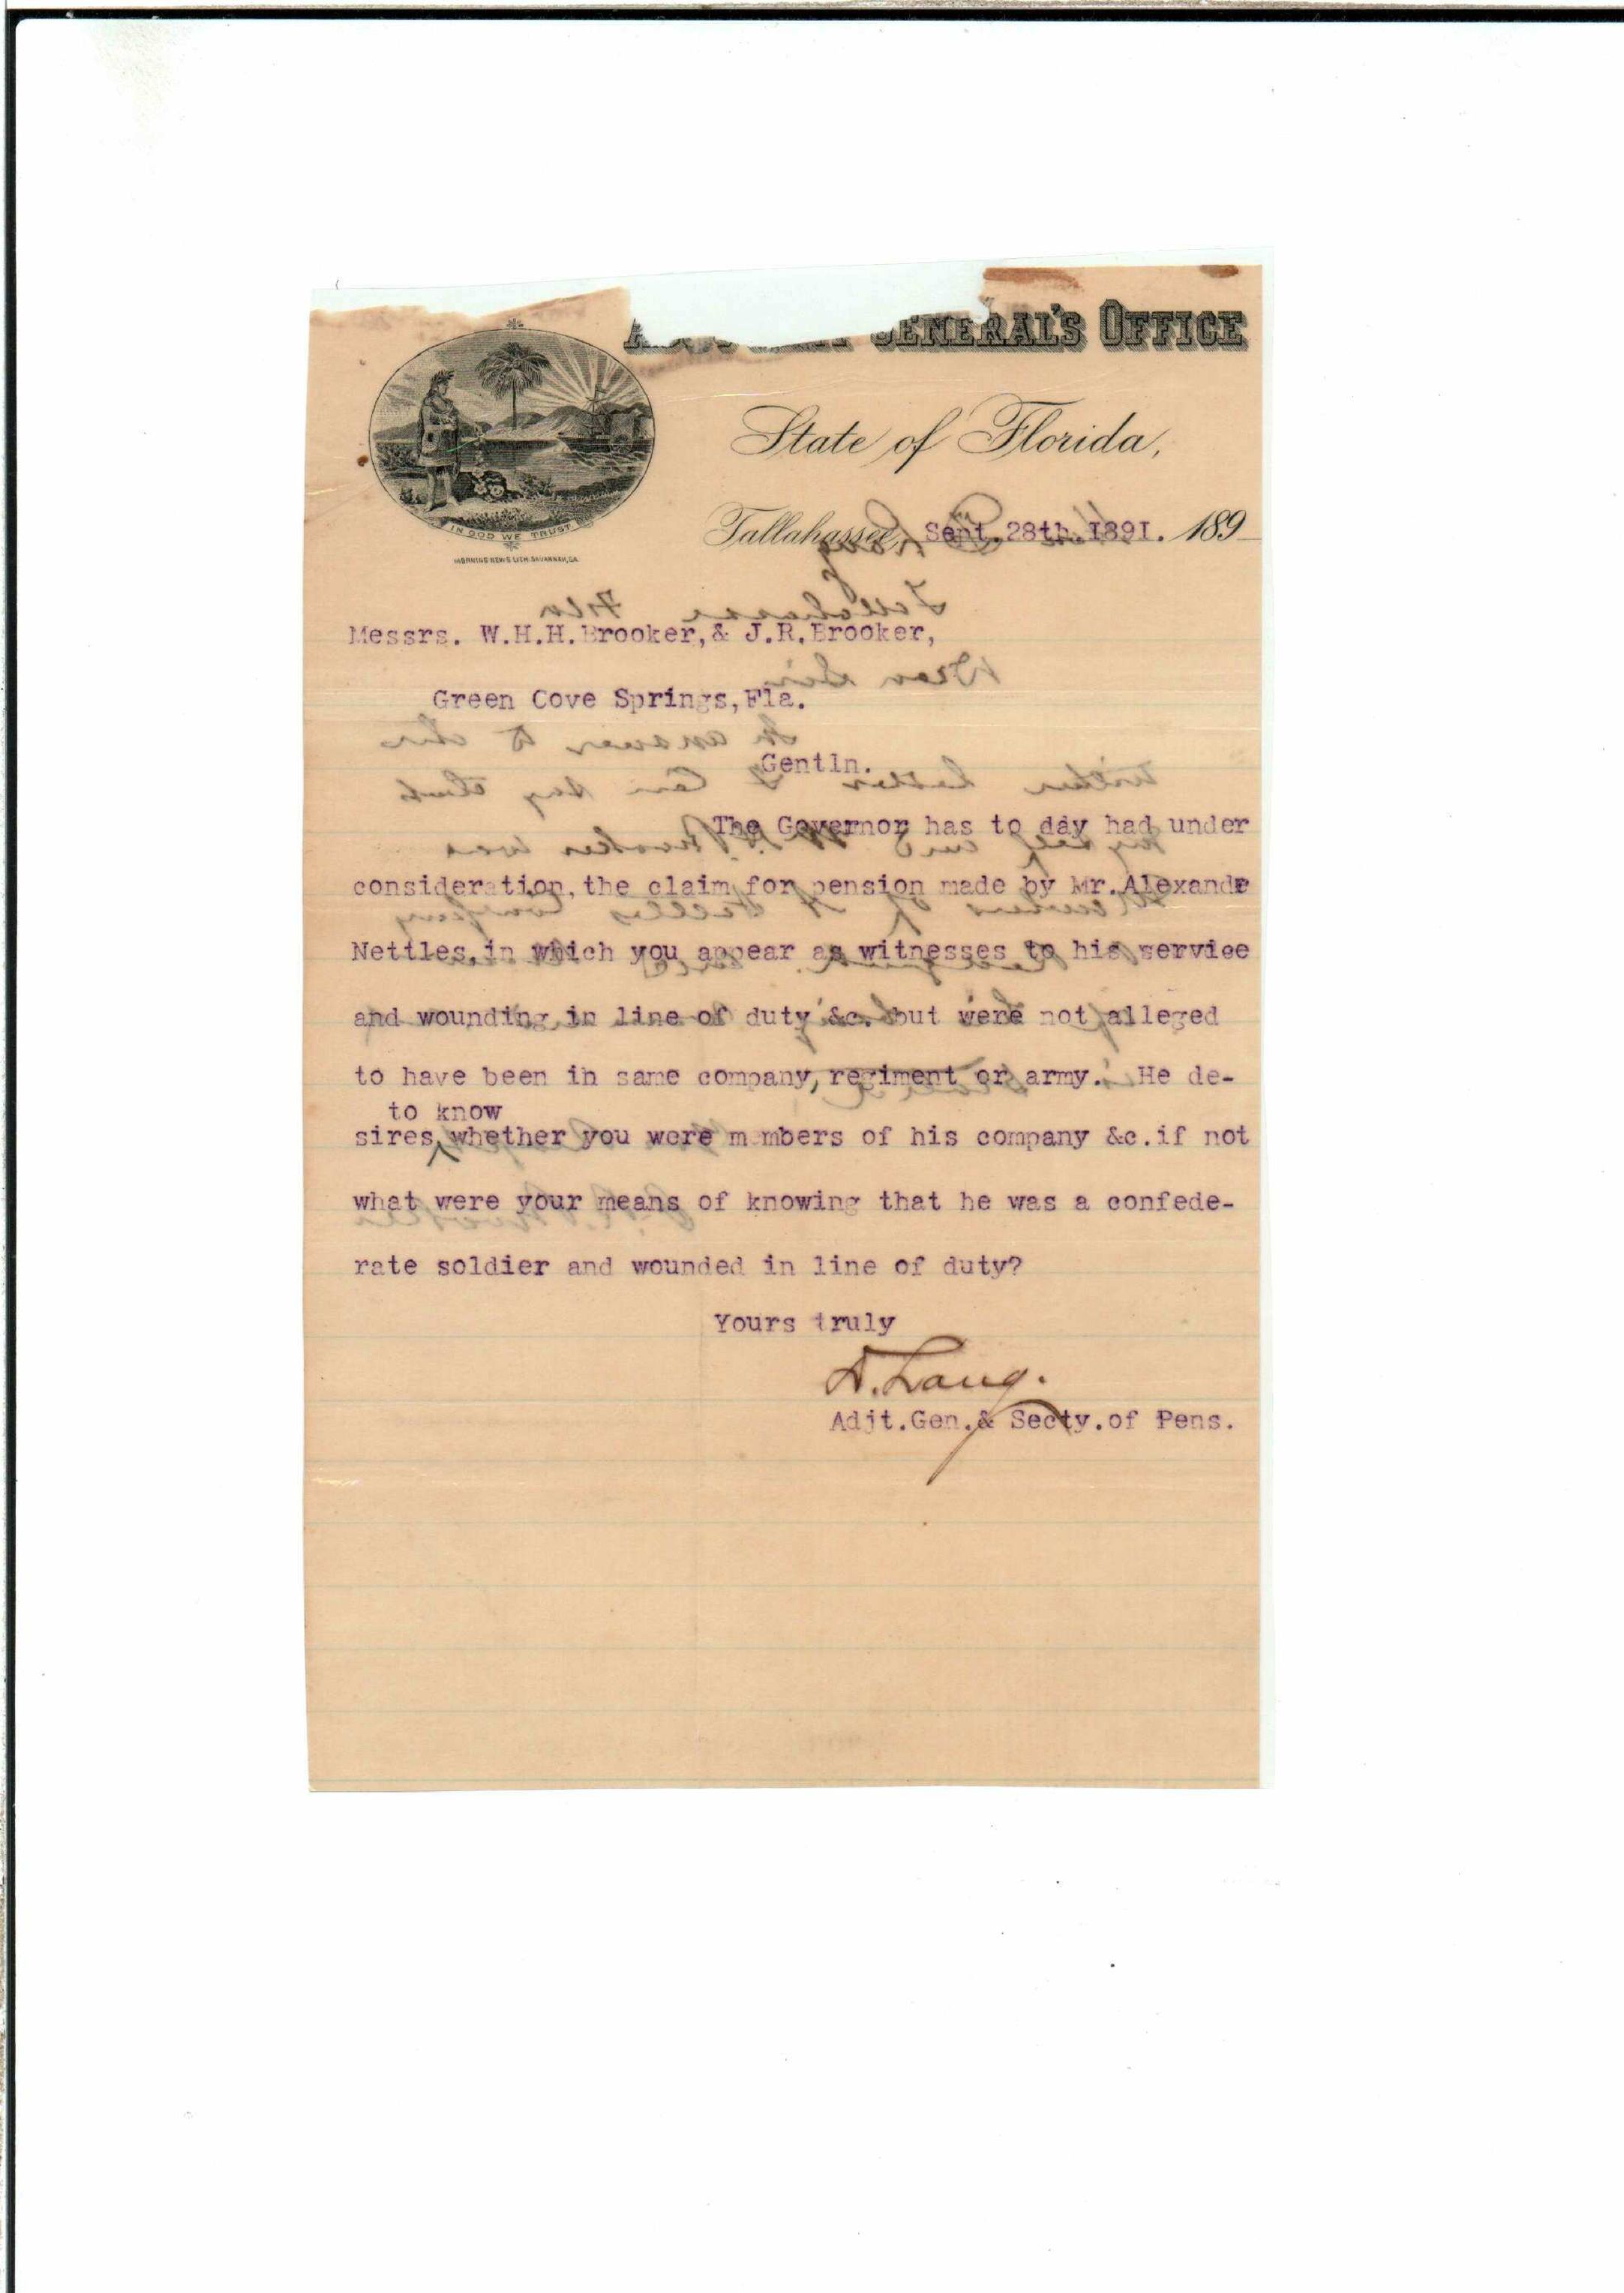 GENERAL'S OFFICE
State of Florida,
IN GOD WE TRUST
MORNING NEWS LITH. SAVANNAH, GA.
Tallahassee, Sept. 28th. 1891. 189
Messrs. W.H.H.Brooker,& J.R.Brooker,
Green Cove Springs,Fla.
Gentln.
The Governor has to day had under
consideration,the claim for pension made by Mr.Alexandr
Nettles,in which you appear as witnesses to his service
and wounding in line of duty &c. but were not alleged
to have been in same company, regiment or army. He de-
to know
sires whether you were members of his company &c.if not
what were your means of knowing that he was a confede-
rate soldier and wounded in line of duty?
Yours truly
D. Lang.
Adjt.Gen.& Secty.of Pens.